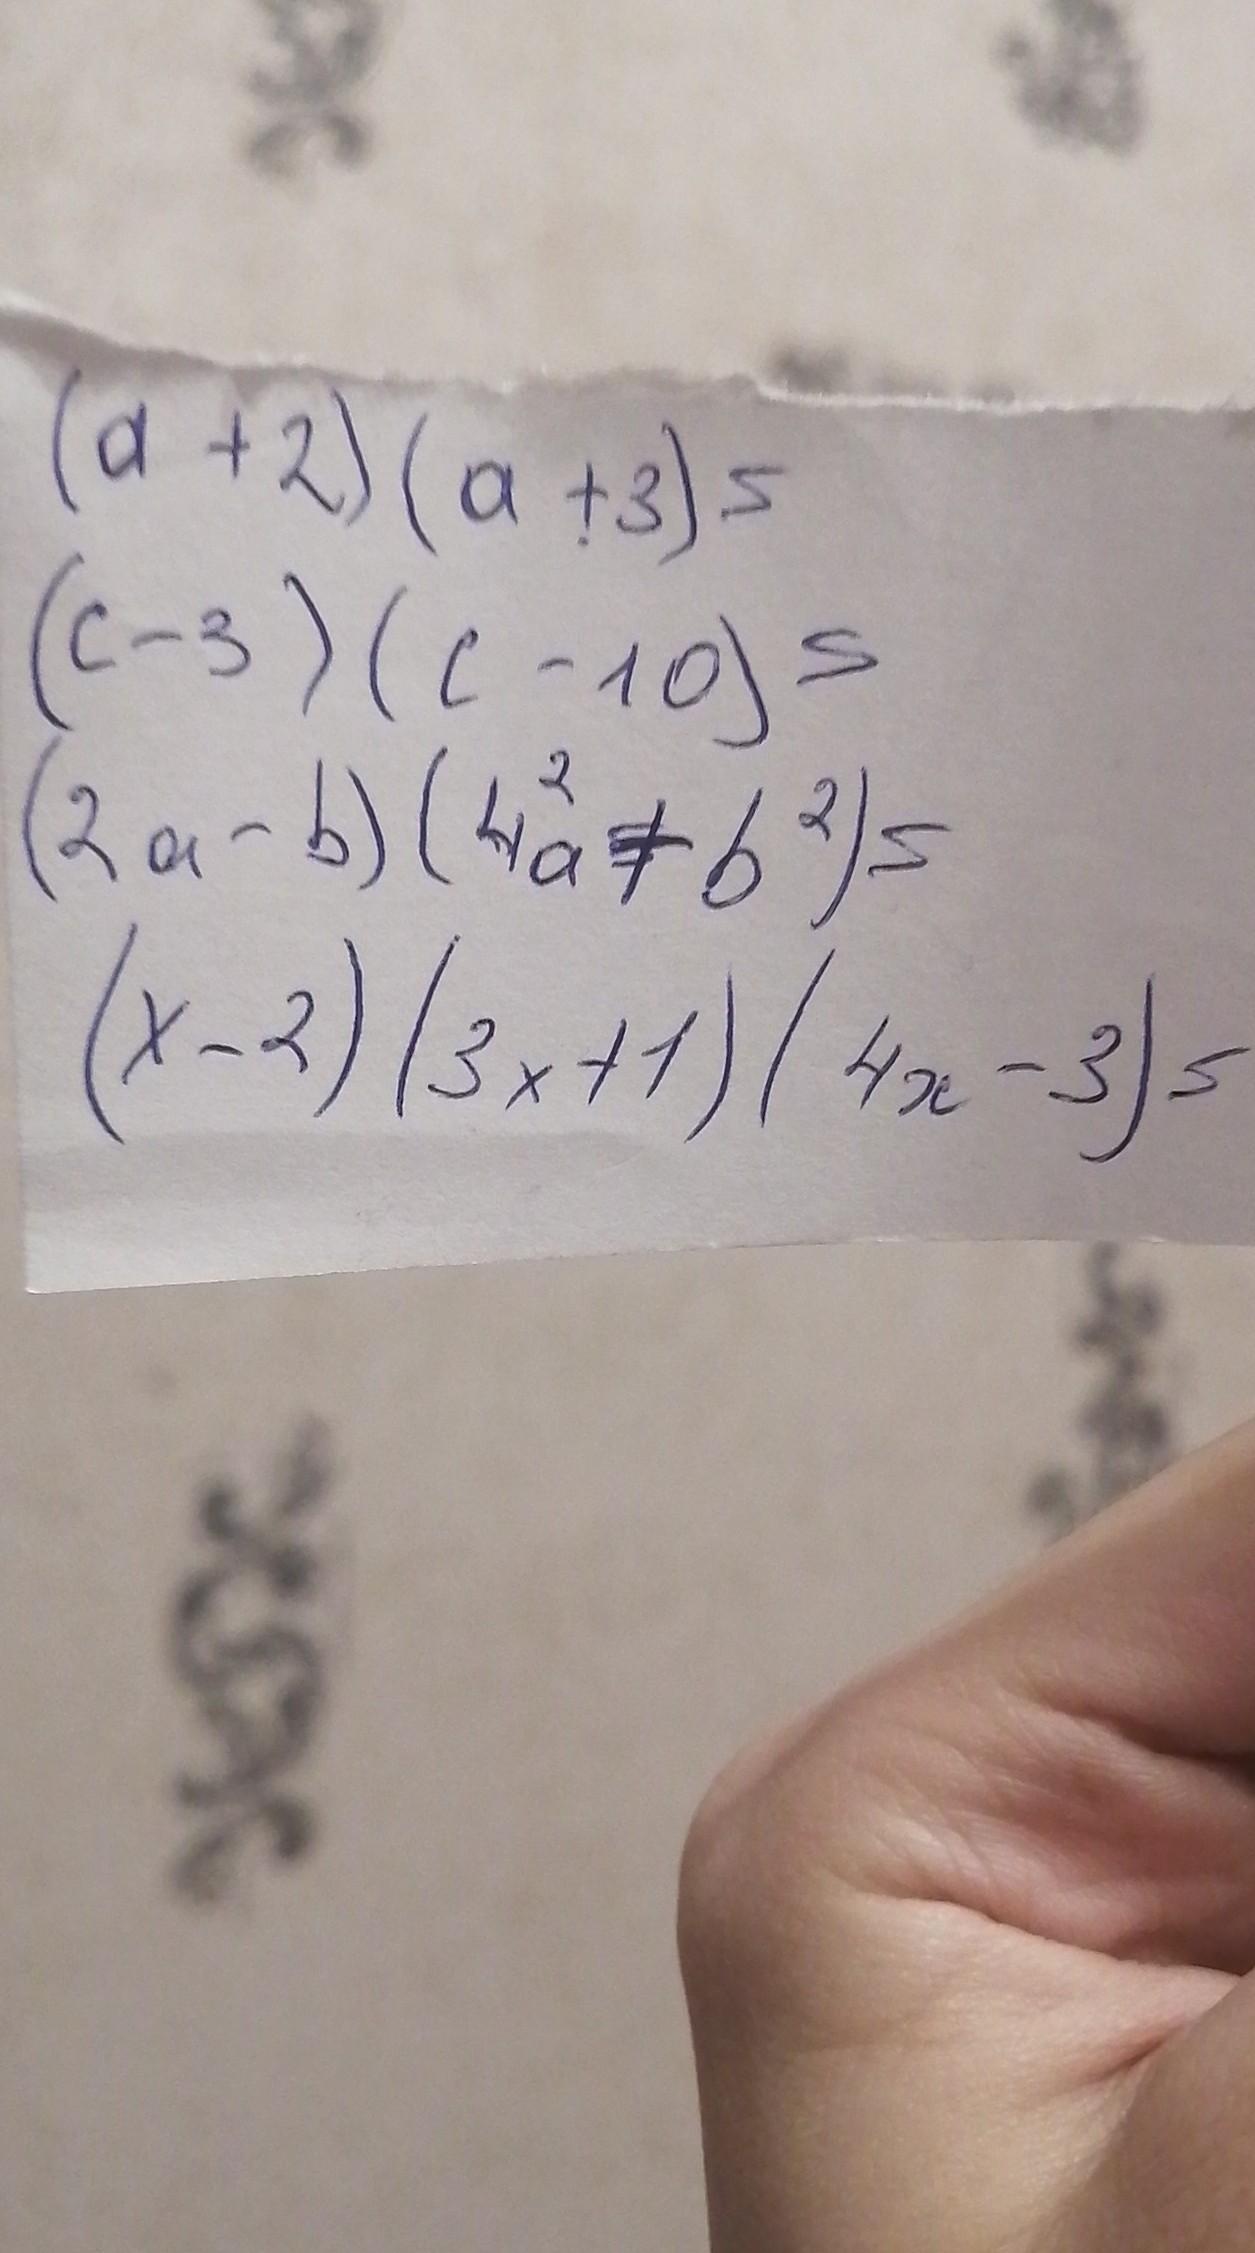 (a + 2)(a + 3) =
(c - 3)(c - 10) =
(2a - b)(4a² + b²) =
(x - 2)(3x + 1)(4x - 3) =